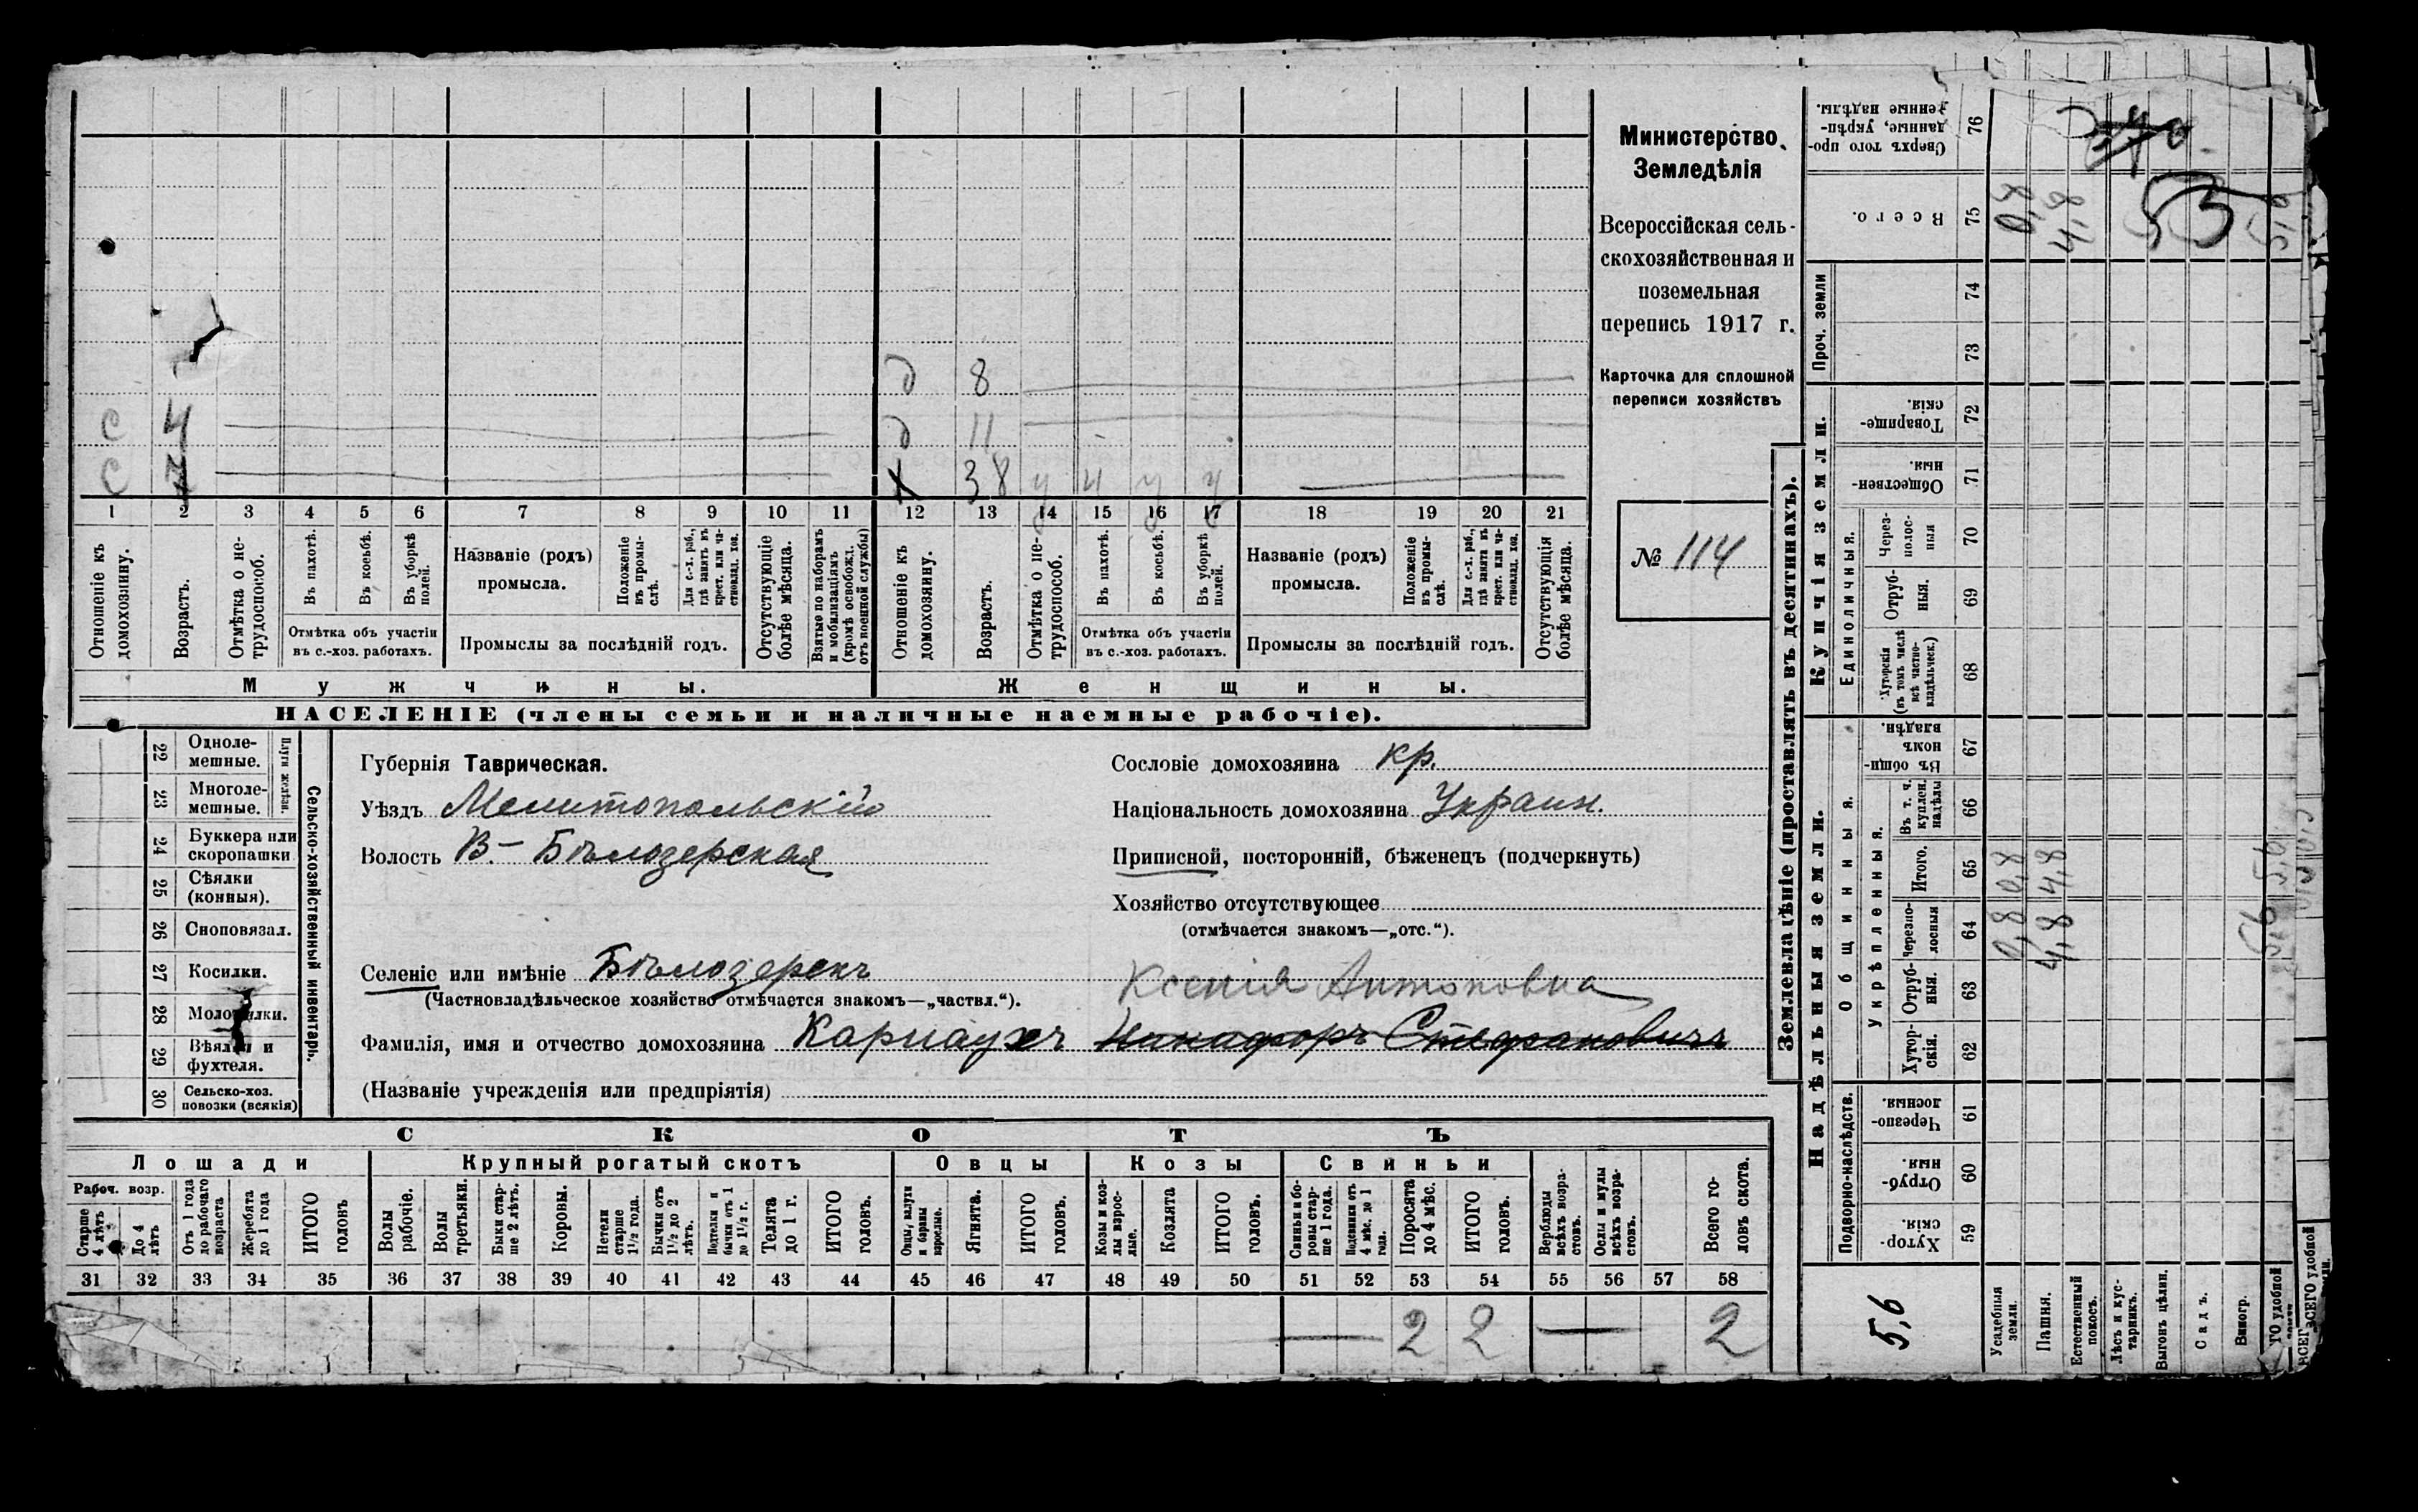 Министерство
Земледѣлія
Всероссійская сель-
скохозяйственная и
поземельная
перепись 1917 г.
Карточка для сплошной
переписи хозяйствъ
№ 114
д 8
С 4 д 11
С 7 х 38 у ч у у
1 2 3 4 5 6 7 8 9 10 11 12 13 14 15 16 17 18 19 20 21
Отношеніе къ домохозяину.
Возрастъ.
Отмѣтка о не-трудоспособ.
Въ пахотѣ.
Въ косьбѣ.
Въ уборкѣ полей.
Отмѣтка объ участіи
въ с.-хоз. работахъ.
Названіе (родъ)
промысла.
Положеніе въ промы-слѣ.
Для с.-х. раб., гдѣ занятъ въ крест. или ча-стновлад. хоз.
Промыслы за послѣдній годъ.
Отсутствующіе болѣе мѣсяца.
Взятые по наборамъ и мобилизаціямъ (кромѣ освобожд. отъ военной службы)
Отношеніе къ домохозяину.
Возрастъ.
Отмѣтка о не-трудоспособ.
Въ пахотѣ.
Въ косьбѣ.
Въ уборкѣ полей.
Отмѣтка объ участіи
въ с.-хоз. работахъ.
Названіе (родъ)
промысла.
Положеніе въ промы-слѣ.
Для с.-х. раб., гдѣ занята въ крест. или ча-стновлад. хоз.
Промыслы за послѣдній годъ.
Отсутствующія болѣе мѣсяца.
Мужчины. Женщины.
НАСЕЛЕНІЕ (члены семьи и наличные наемные рабочіе).
Сельско-хозяйственный инвентарь.
Плуги желѣзн.
22 Одноле-мешные.
23 Многоле-мешные.
24 Буккера или скоропашки
25 Сѣялки (конныя).
26 Сноповязал.
27 Косилки.
28 Молотилки.
29 Вѣялки и фухтеля.
30 Сельско-хоз. повозки (всякія)
Губернія Таврическая.
Уѣздъ Мелитопольскій
Волость В.- Бѣлозерская
Селеніе или имѣніе Бѣлозерскъ
(Частновладѣльческое хозяйство отмѣчается знакомъ—„частвл.“).
Сословіе домохозяина кр.
Національность домохозяина Украин.
Приписной, посторонній, бѣженецъ (подчеркнуть)
Хозяйство отсутствующее
(отмѣчается знакомъ—„отс.“).
Ксенія Антоновна
Фамилія, имя и отчество домохозяина Карнаухъ Никифоръ Стефановичъ
(Названіе учрежденія или предпріятія)
СКОТЪ
Лошади Крупный рогатый скотъ Овцы Козы Свиньи
Рабоч. возр.
Старше 4 лѣтъ
До 4 лѣтъ
Отъ 1 года до рабочаго возраста
Жеребята до 1 года
ИТОГО головъ
Волы рабочіе.
Волы третьяки.
Быки стар-ше 2 лѣтъ.
Коровы.
Нетели старше 1½ года.
Бычки отъ 1½ до 2 лѣтъ.
Подтелки и бычки отъ 1 до 1½ г.
Телята до 1 г.
ИТОГО головъ.
Овцы, валухи и бараны взрослые.
Ягнята.
ИТОГО головъ.
Козы и коз-лы взрос-лые.
Козлята
ИТОГО головъ.
Свиньи и бо-ровы стар-ше 1 года.
Подсвинки отъ 4 мѣс. до 1 года.
Поросята до 4 мѣс.
ИТОГО головъ.
Верблюды всѣхъ возра-стовъ.
Ослы и мулы всѣхъ возра-стовъ.
Всего го-ловъ скота.
31 32 33 34 35 36 37 38 39 40 41 42 43 44 45 46 47 48 49 50 51 52 53 54 55 56 57 58
2 2 2
Землевладѣніе (проставлять въ десятинахъ).
Купчія земли.
Надѣльныя земли.
Сверхъ того про-данные, укрѣп-ленные надѣлы. 76
Всего. 75 0,8 4,8
53
Проч. земли 74 73
Товарище-скія. 72
Обществен-ныя. 71
Единоличныя.
Через-полос-ныя 70
Отруб-ныя. 69
Хуторскія (въ томъ числѣ всѣ частно-владѣльческ.) 68
Общинныя.
Въ общи-номъ владѣн. 67
Укрѣпленныя.
Въ т. ч. куплен. надѣлы 66
Итого. 65 0,8 4,8
Черезпо-лосныя 64 0,8 4,8
Отруб-ныя. 63
Хутор-скія. 62
Подворно-наслѣдств.
Черезпо-лосныя. 61
Отруб-ныя. 60
Хутор-скія. 59
5,6
Усадебныя земли.
Пашня.
Естественный покосъ.
Лѣсъ и кус-тарникъ.
Выгонъ цѣлин.
Садъ.
Виногр.